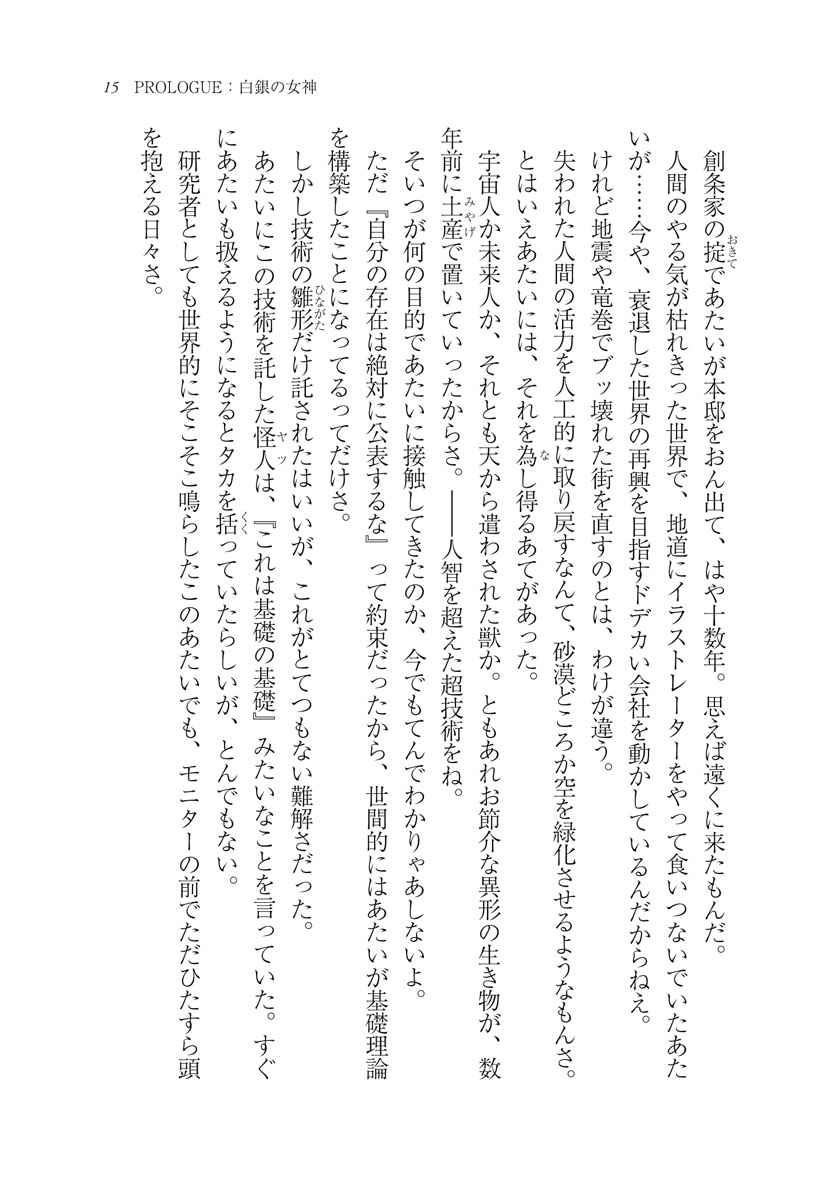 15 PROLOGUE：白銀の女神
創条家の掟であたいが本邸をおん出て、はや十数年。思えば遠くに来たもんだ。
人間のやる気が枯れきった世界で、地道にイラストレーターをやって食いつないでいたあた
いが……今や、衰退した世界の再興を目指すドデカい会社を動かしているんだからねえ。
けれど地震や竜巻でブッ壊れた街を直すのとは、わけが違う。
失われた人間の活力を人工的に取り戻すなんて、砂漠どころか空を緑化させるようなもんさ。
とはいえあたいには、それを為し得るあてがあった。
宇宙人か未来人か、それとも天から遣わされた獣か。ともあれお節介な異形の生き物が、数
年前に土産で置いていったからさ。――人智を超えた超技術をね。
そいつが何の目的であたいに接触してきたのか、今でもてんでわかりゃあしないよ。
ただ『自分の存在は絶対に公表するな』って約束だったから、世間的にはあたいが基礎理論
を構築したことになってるってだけさ。
しかし技術の雛形だけ託されたはいいが、これがとてつもない難解さだった。
あたいにこの技術を託した怪人は、『これは基礎の基礎』みたいなことを言っていた。すぐ
にあたいも扱えるようになるとタカを括っていたらしいが、とんでもない。
研究者としても世界的にそこそこ鳴らしたこのあたいでも、モニターの前でただひたすら頭
を抱える日々さ。
おきて
みやげ
な
ひながた
ヤツ
くく